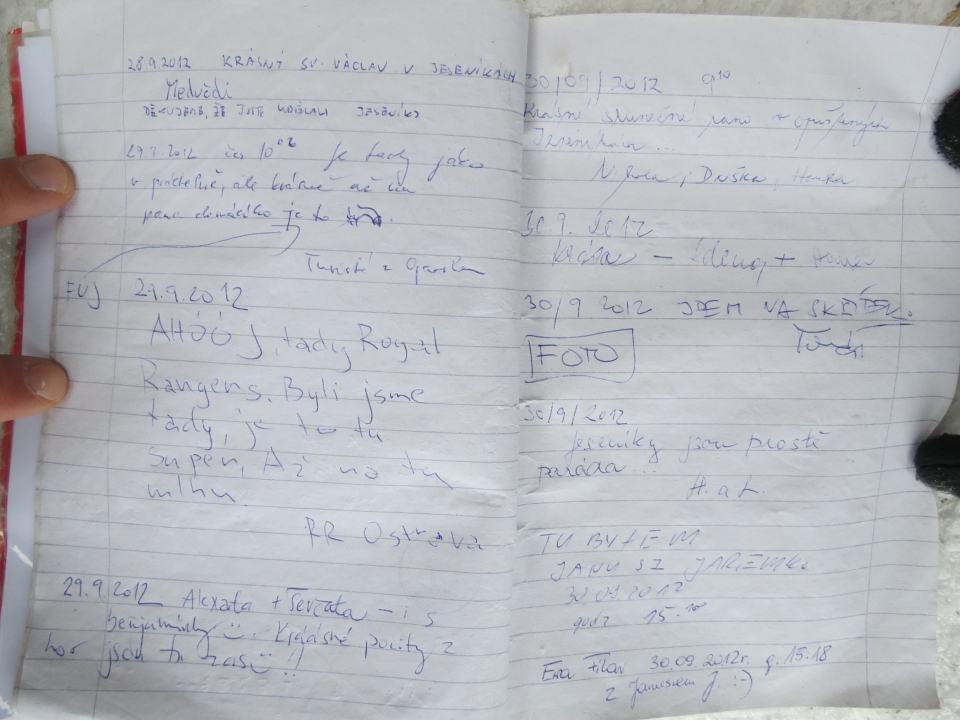 28.9.2012 KRÁSNÝ SV. VÁCLAV V JESENÍKÁCH
Medvědi
DĚKUJEME, ŽE JSTE
29.9.2012 čas 10 je tady jako
v prádelně, ale krásné
pana domácího je to
Turisté z
FUJ
29.9.2012
AHÓÓJ, tady Royal
Rangers. Byli jsme
tady, je to tu
super, Až na tu
mlhu.
RR Ostrava
29.9.2012 + Terčata - i s
benjamínky Kráásné pocity z
hor jsou tu zase !!
30/09/2012 9¹⁰
Krásné slunečné ráno v opuštěných
Jeseníkách...
DUŠKA, Hanka
30.9.2012
Krása -
30/9 2012 JDEM NA SKŘÍTEK.
FOTO
30/9/2012
Jeseníky jsou prostě
paráda...
H. a L.
TU BYŁEM
JANUSZ JAREMKO
30.09.2012
godz 15.¹⁰⁰
Ewa 30.09.2012r. g. 15.18
z Januszem J. :-)